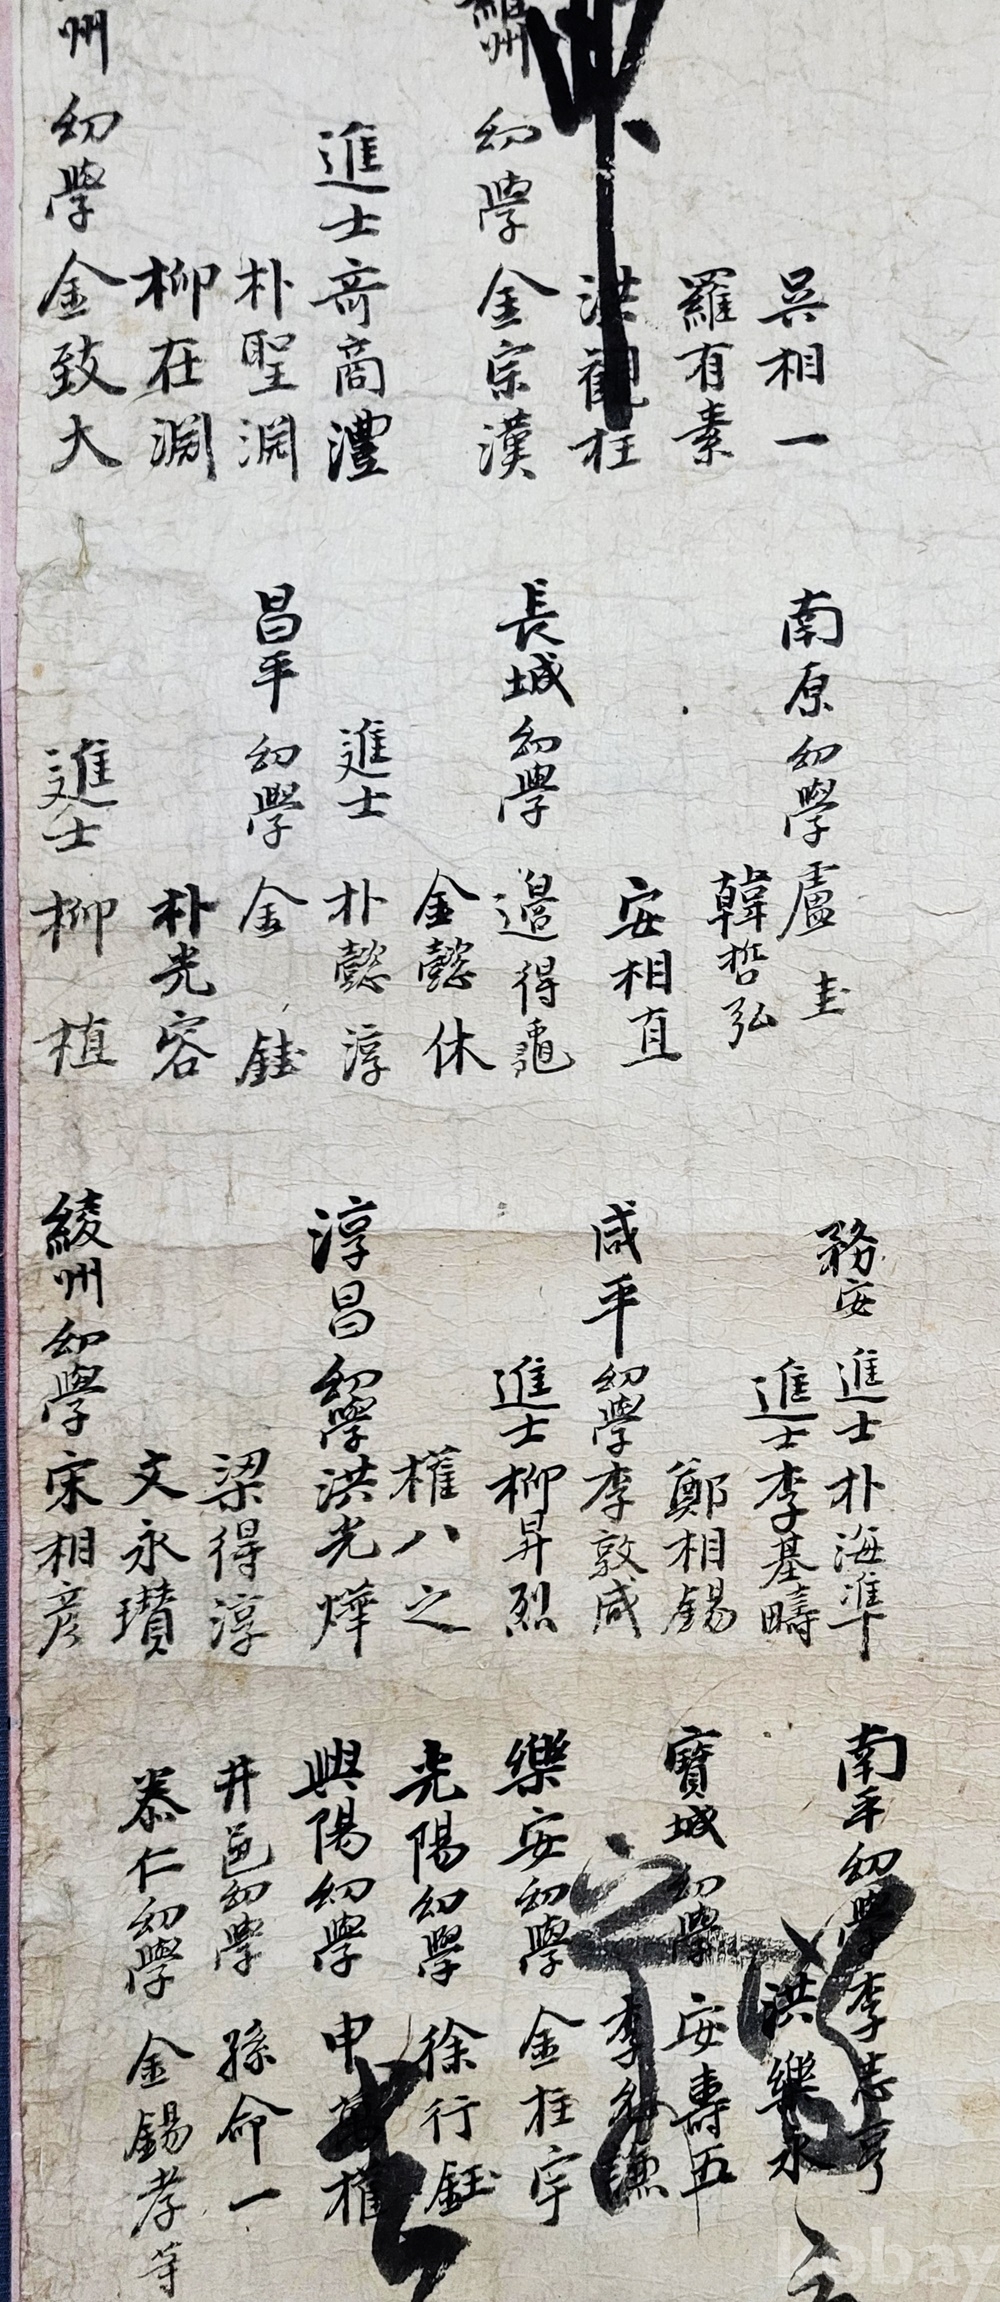 吳相一
羅有素
洪觀柱
羅州 幼學 金宗漢
進士 奇商灃
朴聖淵
柳在淵
州 幼學 金致大
南原 幼學 盧圭
韓哲弘
安相直
長城 幼學 邊得龜
金懿休
進士 朴懿淳
昌平 幼學 金銈
朴光容
進士 柳植
務安 進士 朴海準
進士 李基疇
鄭相錫
咸平 幼學 李敦咸
進士 柳昇烈
權八之
淳昌 幼學 洪光燁
梁得淳
文永瓚
綾州 幼學 宋相彦
南平 幼學 李志亨
洪樂永
寶城 幼學 安壽五
李謙
樂安 幼學 金柱宇
光陽 幼學 徐行鈺
興陽 幼學 申萬權
井邑 幼學 孫命一
泰仁 幼學 金錫孝 等
kobay